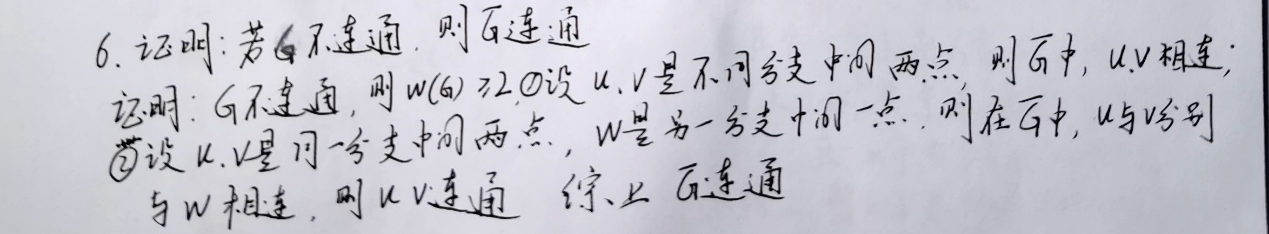 6. 证明:若G不连通,则G̅连通
证明:G不连通,则W(G)≥2,①设u.v是不同分支中间两点,则G̅中,u.v相连;
②设u.v是同一分支中间两点,W是另一分支中间一点,则在G̅中,u与v分别
与W相连,则u v连通 综上 G̅连通